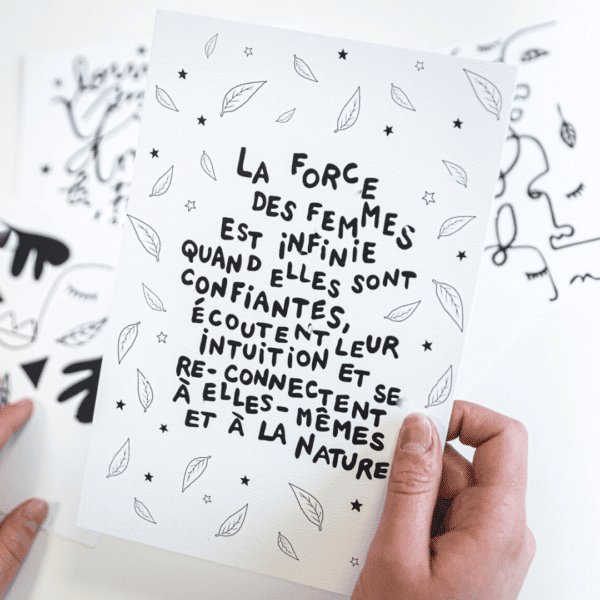 LA FORCE
DES FEMMES
EST INFINIE
QUAND ELLES SONT
CONFIANTES,
ÉCOUTENT LEUR
INTUITION ET SE
RE-CONNECTENT
À ELLES-MÊMES
ET À LA NATURE